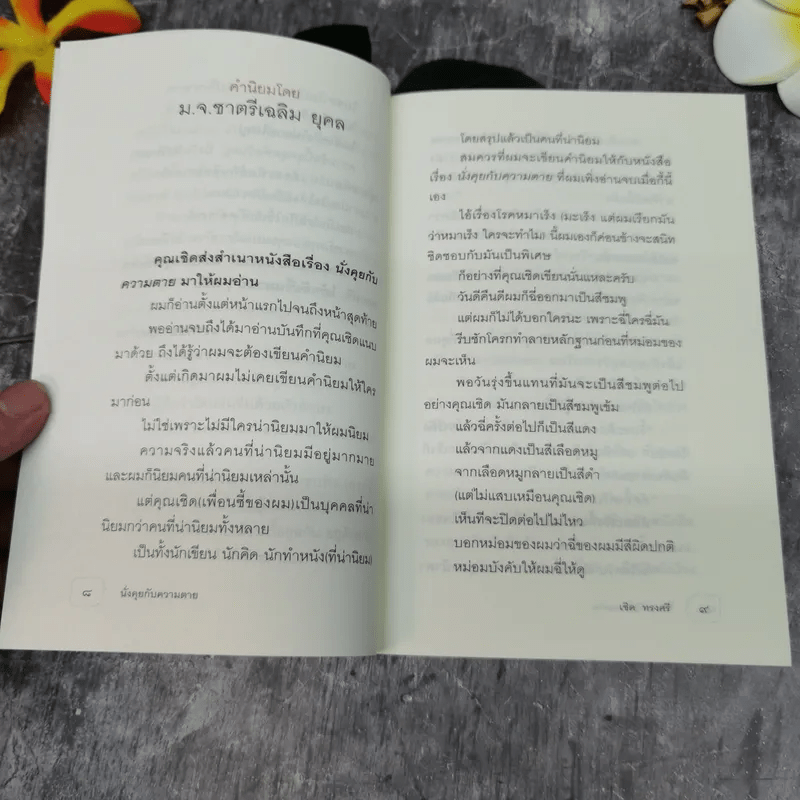 คำนิยมโดย
ม.จ.ชาตรีเฉลิม ยุคล
คุณเชิดส่งสำเนาหนังสือเรื่อง นั่งคุยกับ
ความตาย มาให้ผมอ่าน
ผมก็อ่านตั้งแต่หน้าแรกไปจนถึงหน้าสุดท้าย
พออ่านจบถึงได้มาอ่านบันทึกที่คุณเชิดแนบ
มาด้วย ถึงได้รู้ว่าผมจะต้องเขียนคำนิยม
ตั้งแต่เกิดมาผมไม่เคยเขียนคำนิยมให้ใคร
มาก่อน
ไม่ใช่เพราะไม่มีใครน่านิยมมาให้ผมนิยม
ความจริงแล้วคนที่น่านิยมมีอยู่มากมาย
และผมก็นิยมคนที่น่านิยมเหล่านั้น
แต่คุณเชิด(เพื่อนซี้ของผม)เป็นบุคคลที่น่า
นิยมกว่าคนที่น่านิยมทั้งหลาย
เป็นทั้งนักเขียน นักคิด นักทำหนัง(ที่น่านิยม)
๘ นั่งคุยกับความตาย
โดยสรุปแล้วเป็นคนที่น่านิยม
สมควรที่ผมจะเขียนคำนิยมให้กับหนังสือ
เรื่อง นั่งคุยกับความตาย ที่ผมเพิ่งอ่านจบเมื่อกี้นี้
เอง
ไอ้เรื่องโรคหมาเร็ง (มะเร็ง แต่ผมเรียกมัน
ว่าหมาเร็ง ใครจะทำไม) นี้ผมเองก็ค่อนข้างจะสนิท
ชิดชอบกับมันเป็นพิเศษ
ก็อย่างที่คุณเชิดเขียนนั่นแหละครับ
วันดีคืนดีผมก็ฉี่ออกมาเป็นสีชมพู
แต่ผมก็ไม่ได้บอกใครนะ เพราะฉี่ใครฉี่มัน
รีบชักโครกทำลายหลักฐานก่อนที่หม่อมของ
ผมจะเห็น
พอวันรุ่งขึ้นแทนที่มันจะเป็นสีชมพูต่อไป
อย่างคุณเชิด มันกลายเป็นสีชมพูเข้ม
แล้วฉี่ครั้งต่อไปก็เป็นสีแดง
แล้วจากแดงเป็นสีเลือดหมู
จากเลือดหมูกลายเป็นสีดำ
(แต่ไม่แสบเหมือนคุณเชิด)
เห็นทีจะปิดต่อไปไม่ไหว
บอกหม่อมของผมว่าฉี่ของผมมีสีผิดปกติ
หม่อมบังคับให้ผมฉี่ให้ดู
เชิด ทรงศรี ๙